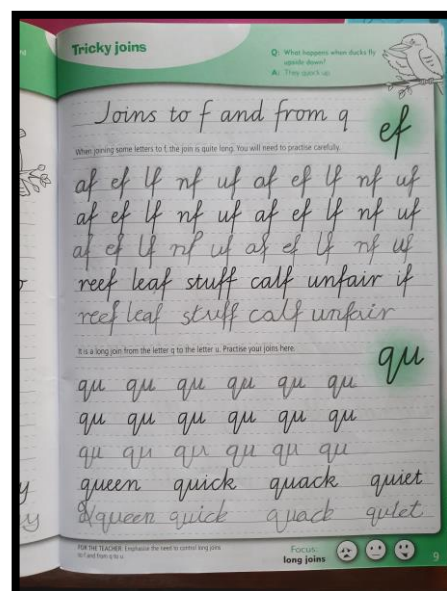 Tricky joins
Q: What happens when ducks fly
upside down?
A: They quack up.
Joins to f and from q
ef
When joining some letters to f, the join is quite long. You will need to practise carefully.
af ef lf nf uf af ef lf nf uf
af ef lf nf uf af ef lf nf uf
af ef lf nf uf af ef lf nf uf
reef leaf stuff calf unfair if
reef leaf stuff calf unfair
It is a long join from the letter q to the letter u. Practise your joins here.
qu
qu qu qu qu qu qu
qu qu qu qu qu qu
qu qu qu qu qu qu
queen quick quack quiet
queen quick quack quiet
FOR THE TEACHER: Emphasise the need to control long joins
to f and from q to u.
Focus:
long joins
9